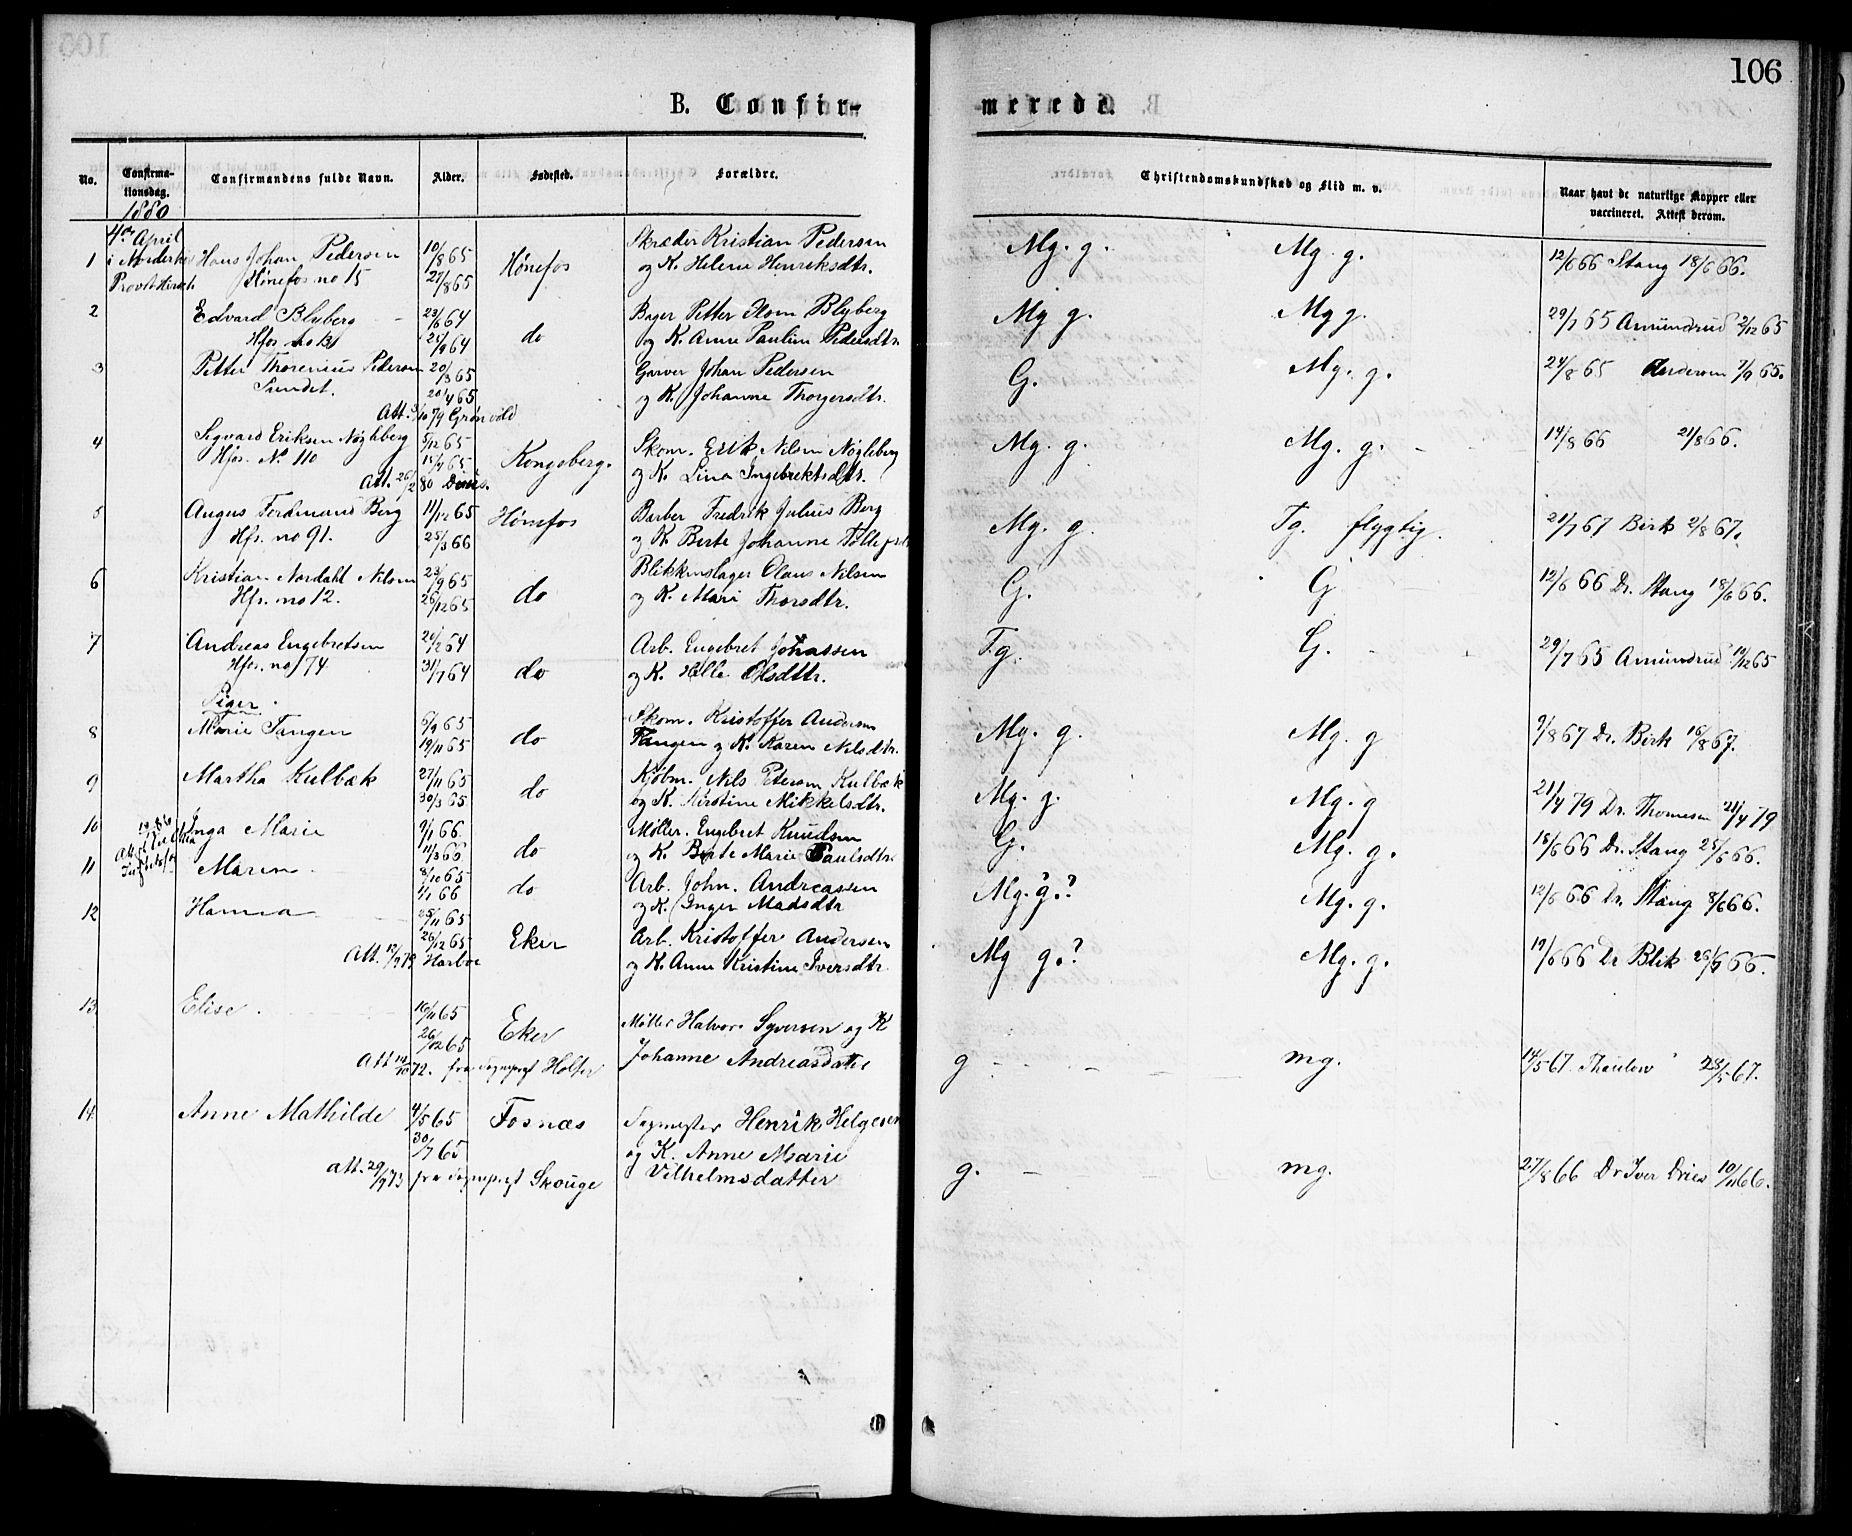 106
B. Confir-
merede.
No.
Confirma-
tionsdag.
Confirmandens fulde Navn.
Alder.
Fødested.
Forældre.
Christendomskundskab og Flid m. v.
Naar havt de naturlige Kopper eller
vaccineret. Attest derom.
1880
4de April
1 i Norderhov Hans Johan Pedersen 10/8 65 Hønefos Skræder Kristian Pedersen Mg. g. Mg. g. 12/6 66 Stang 18/6 66.
Provst Hirsch Hønefos no 15 27/8 65 og K. Helene Henriksdtr.
2 Edvard Blyberg 64 do Bager Petter Blyberg Mg g. Mg g. 29/7 65 Amundrud 2/12 65
Hfos no 131 25/9 64 og K. Anne Pauline Pedersdtr.
3 Petter Thorenius Pedersen 20/3 65 Garver Johan Pedersen G. Mg. g. 24/8 65 Andersen 7/9 65.
Sundet. 20/4 65 og K. Johanne Thorgersdtr.
Att. 3/10 79 Grønvold
4 Sigvard Eriksen Nøgleberg 5/12 65 Kongsberg. Skom. Erik Nilsen Nøgleberg Mg. g. Mg. g. 14/8 66 21/8 66.
Hfos. No 110 65 og K. Lina Ingebrektsdtr.
Att. 26/2 80
5 August Ferdinand Berg 11/12 65 Hønefos Barber Fredrik Julius Berg Mg. g. Tg. flygtig. 21/7 67 Birk 2/8 67.
Hfs. no 91. 25/3 66 og K. Berte Johanne
6 Kristian Nordahl Nilsen 23/9 65 do Blikkenslager Olaus Nilsen G. G 12/6 66 Dr. Stang 18/6 66.
Hfs. no 12. 26/12 65 og K. Mari Thorsdtr.
7 Andreas Engebretsen 64 do Arb. Engebret Johassen Tg. G. 29/7 65 Amundrud 19/12 65
Hfos. no 74 31/7 64 og K. Helle Olsdttr.
Piger.
8 Marie Tangen 5/9 65 do Skom. Kristoffer Andersen Mg. g. Mg. g 9/8 67 Dr. Birk 16/8 67.
19/11 65 Tangen og K. Karen Nilsdtr.
9 Martha Kulbæk 27/11 65 do Kjøbm. Nils Petersen Kulbæk Mg. g. Mg. g 21/4 79 Dr. Thomesen 21/4 79
30/3 65 og K. Kirstine Mikkelsdtr.
10 Inga Marie 9/1 66 do Møller. Engebret Knudsen G. Mg. g. 18/6 66 Dr. Stang 25/6 66.
11/3 66 og K. Berte Marie Paulsdtr.
11 Maren 8/10 65 do Arb. John. Andreassen Mg. g.? Mg. g. 12/6 66 Dr. Stang 8/6 66.
1/1 66 og K. Inger Madsdtr
12 Hanna 25/11 65 Eker Arb. Kristoffer Andersen Mg g.? Mg. g. 19/6 66 Dr Blik 26/6 66.
26/12 65 og K. Anne Kristine Iversdtr.
Att. 12/9 79 Harboe
13 Elise 16/11 65 Eker Møller Halvor Syversen og K g mg. 14/5 67. Thaulow 23/5 67.
26/12 65 Johanne Andreasdatter
Att 72. fra Sognepræst Holter
14 Anne Mathilde 4/5 65 Fosnæs Sagmester Henrik Helgesen g. mg. 27/8 66 Dr Iver Dries 10/11 66.
30/7 65 og K. Anne Marie
att. 29/9 73 fra Sognepræst Skouge Vilhelmsdatter